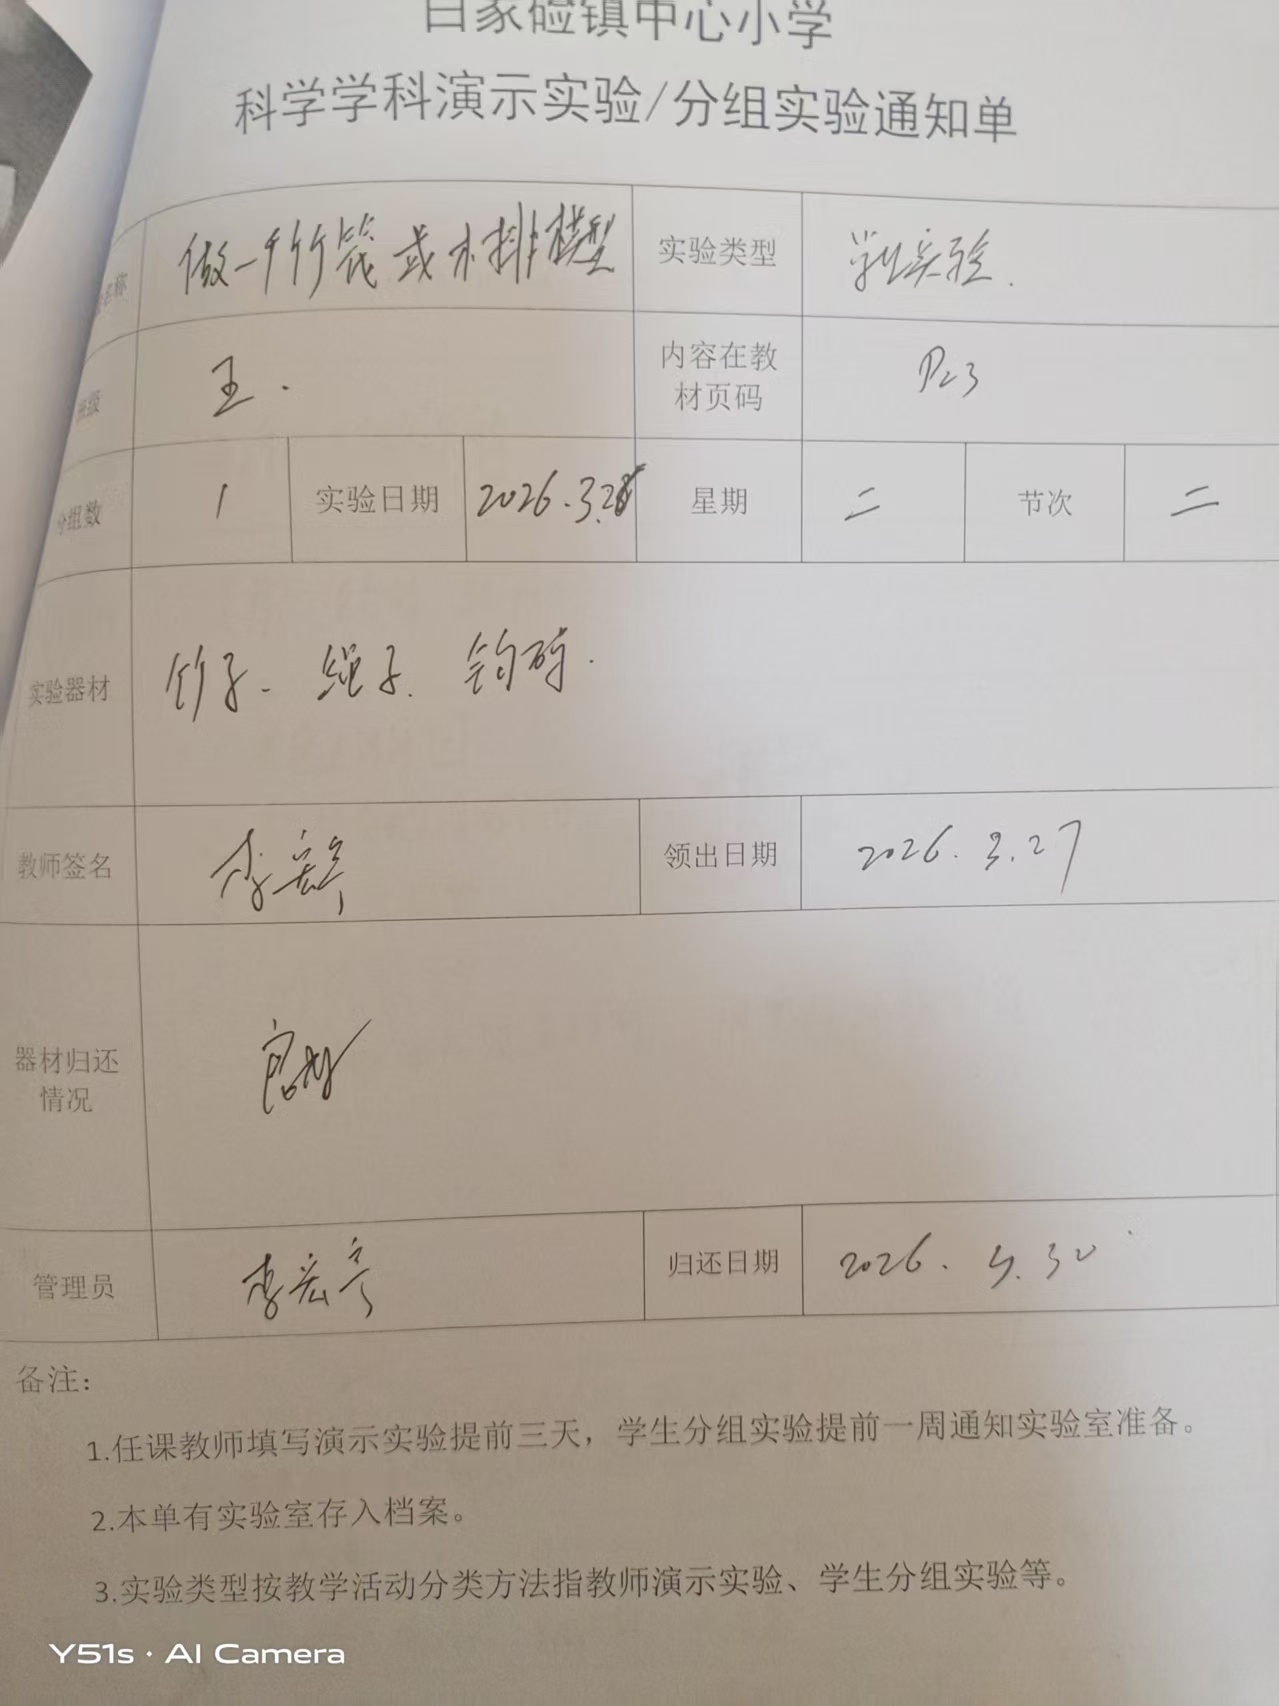 白家硷镇中心小学
科学学科演示实验/分组实验通知单
称 做一个竹筏或木排模型 实验类型 学生实验.
班级 五. 内容在教材页码 P23
分组数 1 实验日期 2026.3.28 星期 二 节次 二
实验器材 竹子. 绳子. 钩码.
教师签名 李宏亭 领出日期 2026.3.27
器材归还情况 完好
管理员 李宏亭 归还日期 2026. 30
备注:
1.任课教师填写演示实验提前三天，学生分组实验提前一周通知实验室准备。
2.本单有实验室存入档案。
3.实验类型按教学活动分类方法指教师演示实验、学生分组实验等。
Y51s · AI Camera